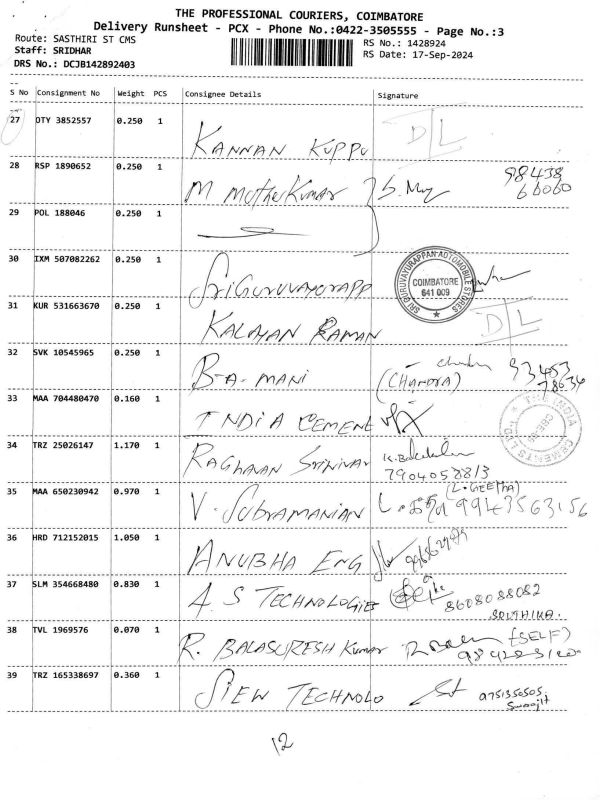 THE PROFESSIONAL COURIERS, COIMBATORE
Delivery Runsheet - PCX - Phone No.:0422-3505555 - Page No.:3
Route: SASTHIRI ST CMS
Staff: SRIDHAR
DRS No.: DCJB142892403
RS No.: 1428924
RS Date: 17-Sep-2024
S No Consignment No Weight PCS Consignee Details Signature
27 OTY 3852557 0.250 1 KANNAN KUPPU D/L
28 RSP 1890652 0.250 1 M MuthuKumar 98438 66060
29 POL 188046 0.250 1
30 IXM 507082262 0.250 1 SRIGURUVAYURAPP
SRI GURUVAYURAPPAN AUTOMOBILE STORES
COIMBATORE
641 009
31 KUR 531663670 0.250 1 KALAYAN RAMAN D/L
32 SVK 10545965 0.250 1 B-A-MANI (CHANDRA) 93453 78634
33 MAA 704480470 0.160 1 INDIA CEMENT
THE INDIA CEMENTS LTD
34 TRZ 25026147 1.170 1 RAGHAVAN Srinivas
7904058813
35 MAA 650230942 0.970 1 V. Subramanian (L. GEETHA) 9943563156
36 HRD 712152015 1.050 1 ANUBHA ENG
37 SLM 354668480 0.830 1 A. S TECHNOLOGIES 8608088082
SOUTHIKA.
38 TVL 1969576 0.070 1 R. BALASURESH Kumar (SELF)
39 TRZ 165338697 0.360 1 SIEW TECHNOLO 9751350505
12